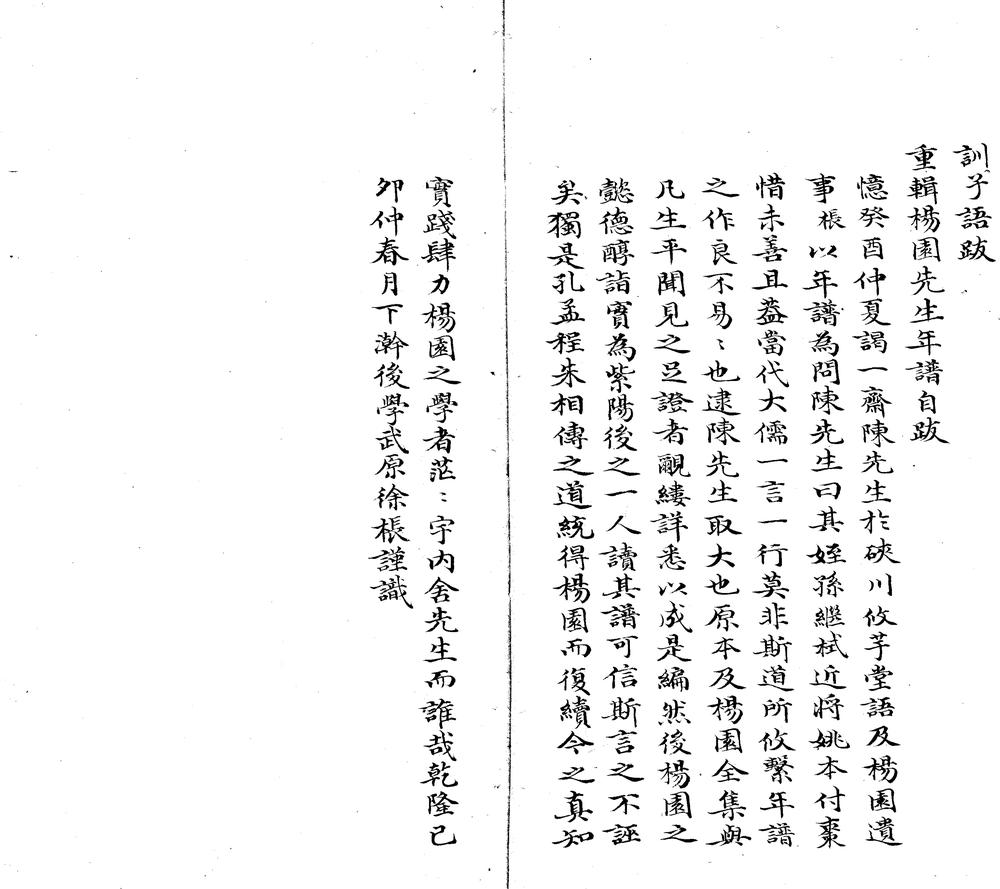 訓子語跋
重輯楊園先生年譜自跋
憶癸酉仲夏謁一齋陳先生於硤川攸芋堂語及楊園遺
事棖以年譜為問陳先生曰其姪孫繼栻近將姚本付棗
惜未善且葢當代大儒一言一行莫非斯道所攸繫年譜
之作良不易〻也逮陳先生取大也原本及楊園全集與
凡生平聞見之足證者覼縷詳悉以成是編然後楊園之
懿德醇詣實為紫陽後之一人讀其譜可信斯言之不誣
矣獨是孔孟程朱相傳之道統得楊園而復續今之真知
實踐肆力楊園之學者茫〻宇內舍先生而誰哉乾隆己
夘仲春月下澣後學武原徐棖謹識